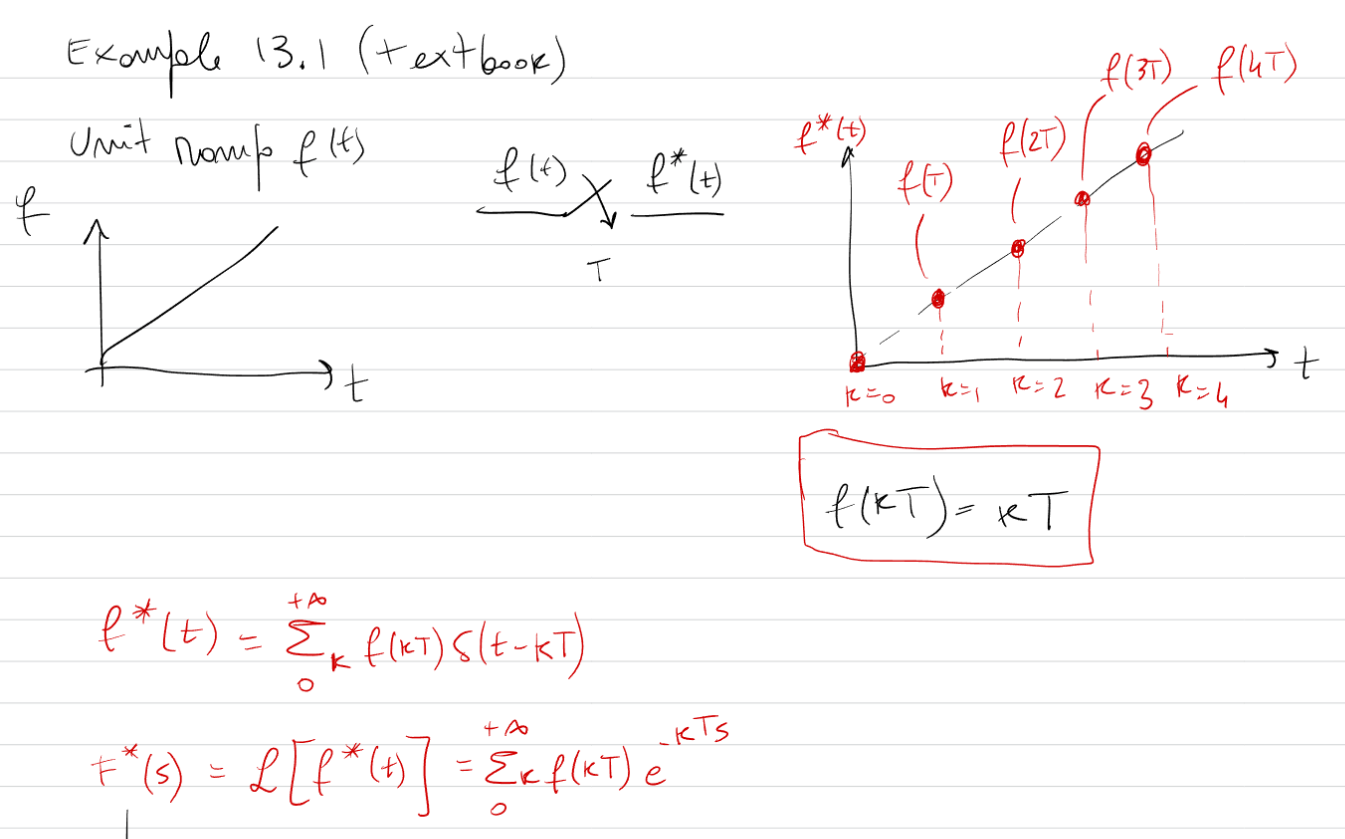 Example 13.1 (textbook)
Unit ramp f(t)
f
t
f(t) f*(t)
T
f*(t)
f(T)
f(2T)
f(3T)
f(4T)
t
k=0 k=1 k=2 k=3 k=4
f(kT) = kT
f*(t) = Σ_k₀^{+∞} f(kT) δ(t-kT)
F*(s) = ℒ[f*(t)] = Σ_k₀^{+∞} f(kT) e^{-kTs}